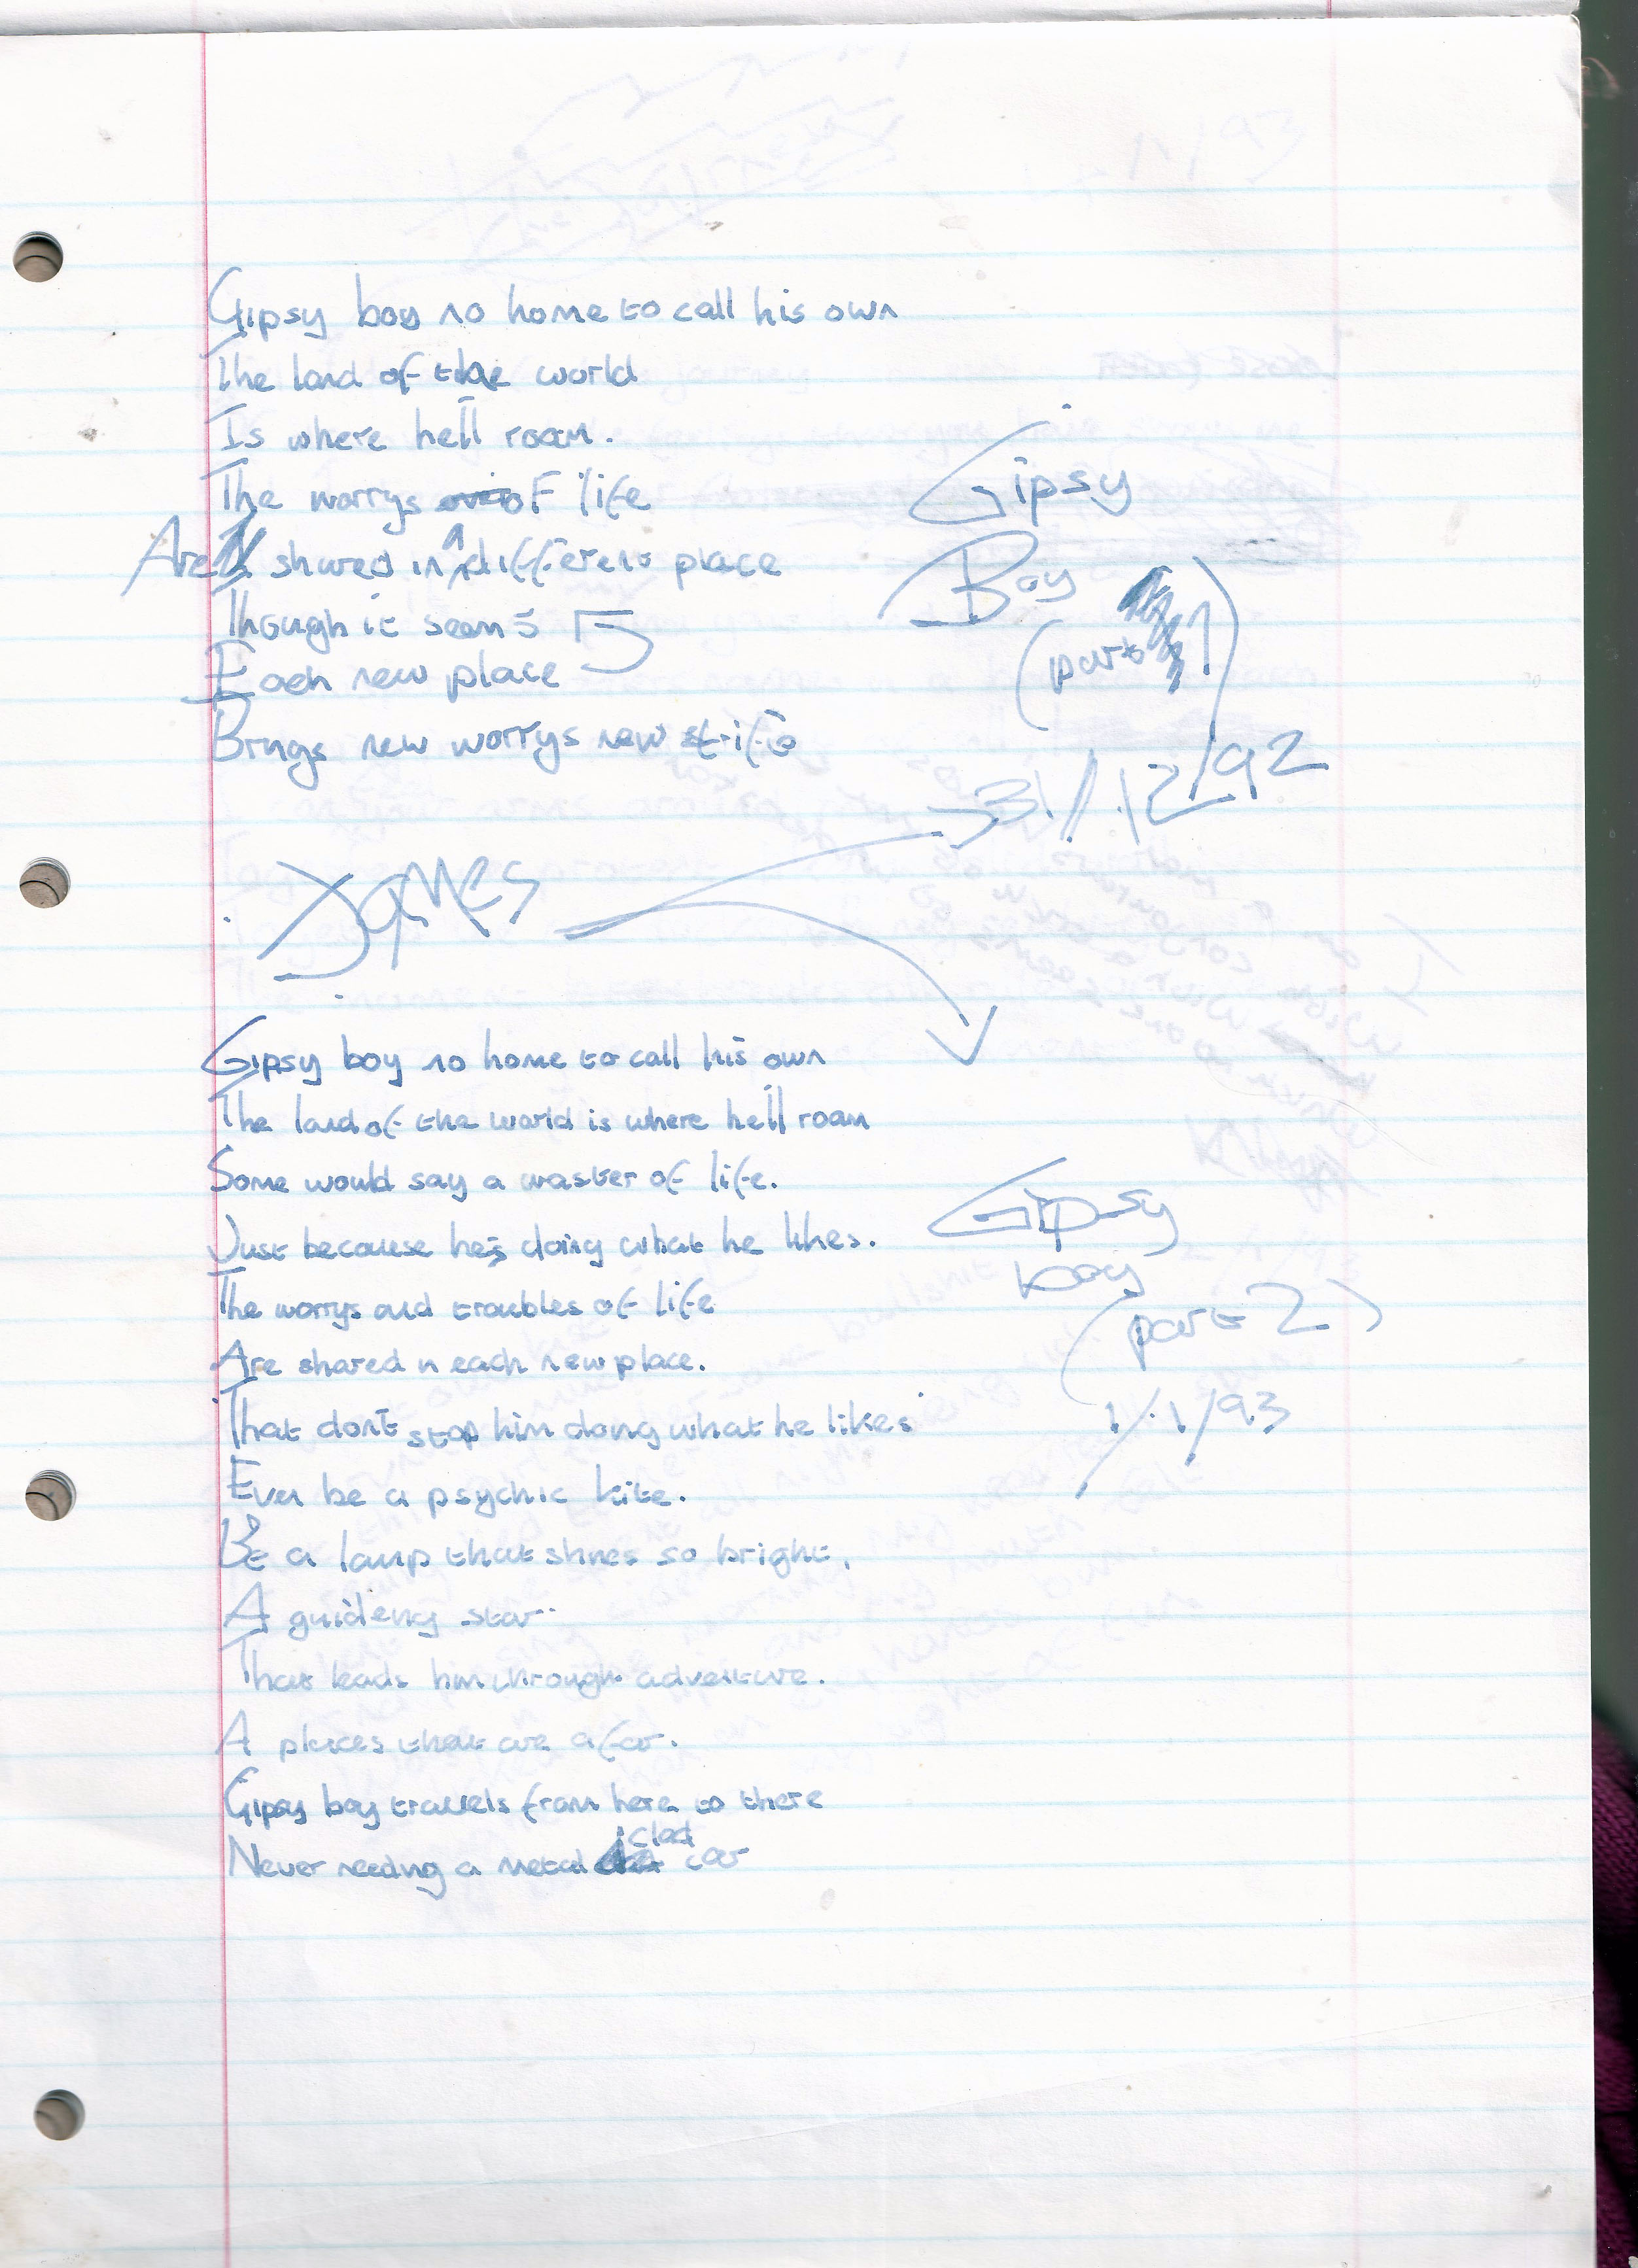 Gipsy boy no home to call his own
The land of the world
Is where he'll roam.
The worrys of life
Are shared in a different place
Though it seems
Each new place
Brings new worrys new strife
Gipsy
Boy
(part 1)
31/12/92
James
Gipsy boy no home to call his own
The land of the world is where he'll roam
Some would say a waster of life.
Just because he's doing what he likes.
The worrys and troubles of life
Are shared n each new place.
That don't stop him doing what he likes
Ever be a psychic kite.
Be a lamp that shines so bright,
A guideing star.
That leads him through adventure.
A places that are afar.
Gipsy boy travels from here to there
Never needing a metal clad car
Gipsy
boy
(part 2)
1/1/93